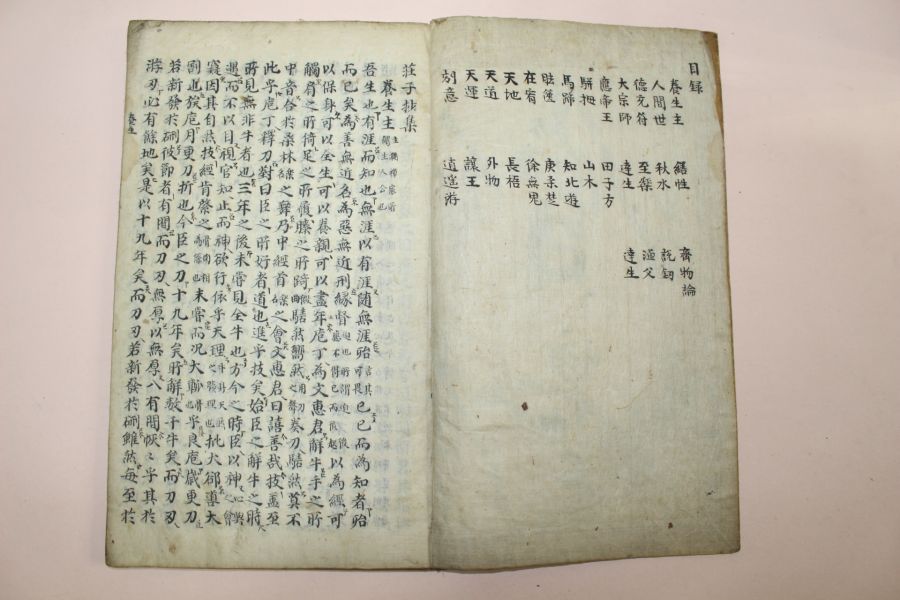 目録
養生主
人間世
德充符
大宗師
應帝王
騈拇
馬蹄
胠篋
在宥
天地
天道
天運
刻意
繕性
秋水
至樂
達生
田子方
山木
知北遊
庚桑楚
徐無鬼
長梧
外物
讓王
逍遙游
齊物論
說釼
漁父
達生
莊子抄集
養生主
吾生也有涯而知也無涯以有涯随無涯殆已已而為知者殆
而已矣為善無近名為惡無近刑緣督以為經可
以保身可以全生可以養親可以盡年庖丁為文惠君觧牛手之所
觸肩之所倚足之所履膝之所踦砉然嚮然奏刀騞然莫不
中音合於桑林之舞乃中經首之會文惠君曰譆善哉技盖至
此乎庖丁釋刀對曰臣之所好者道也進乎技矣始臣之觧牛之時
所見無非牛者也三年之後未嘗見全牛也方今之時臣以神
遇而不以目視官知止而神欲行依乎天理批大郤導大
窾因其自然技經肯綮之未嘗而况大軱乎良庖歲更刀
割也族庖月更刀折也今臣之刀十九年矣所觧數千牛矣而刀刃
若新發於硎彼節者有間而刀刃無厚以無厚入有間恢恢乎其於
游刃必有餘地矣是以十九年矣而刀刃若新發於硎雖然每至於
養生